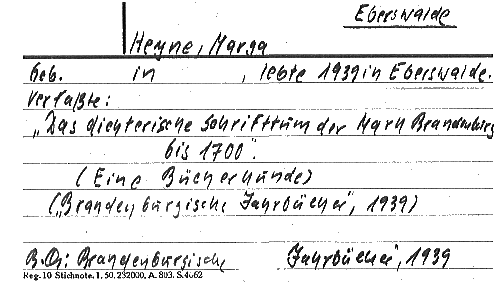 Eberswalde
Heyne, Marga
Geb. in , lebte 1939 in Eberswalde.
Verfaßte:
„Das dichterische Schrifttum der Mark Brandenburg
bis 1700".
(Eine Bücherkunde)
(„Brandenburgische Jahrbücher", 1939)
B.Qu: Brandenburgische Jahrbücher", 1939
Reg. 10 Stichnote. 1, 50, 232000, A. 803. S. 4662